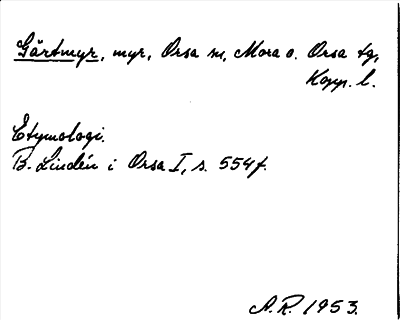 Gärtmyr, myr, Orsa sn, Mora o. Orsa tg,
Kopp. l.
Etymologi.
B. Lindén i Orsa I, s. 554f.
A.R. 1953.